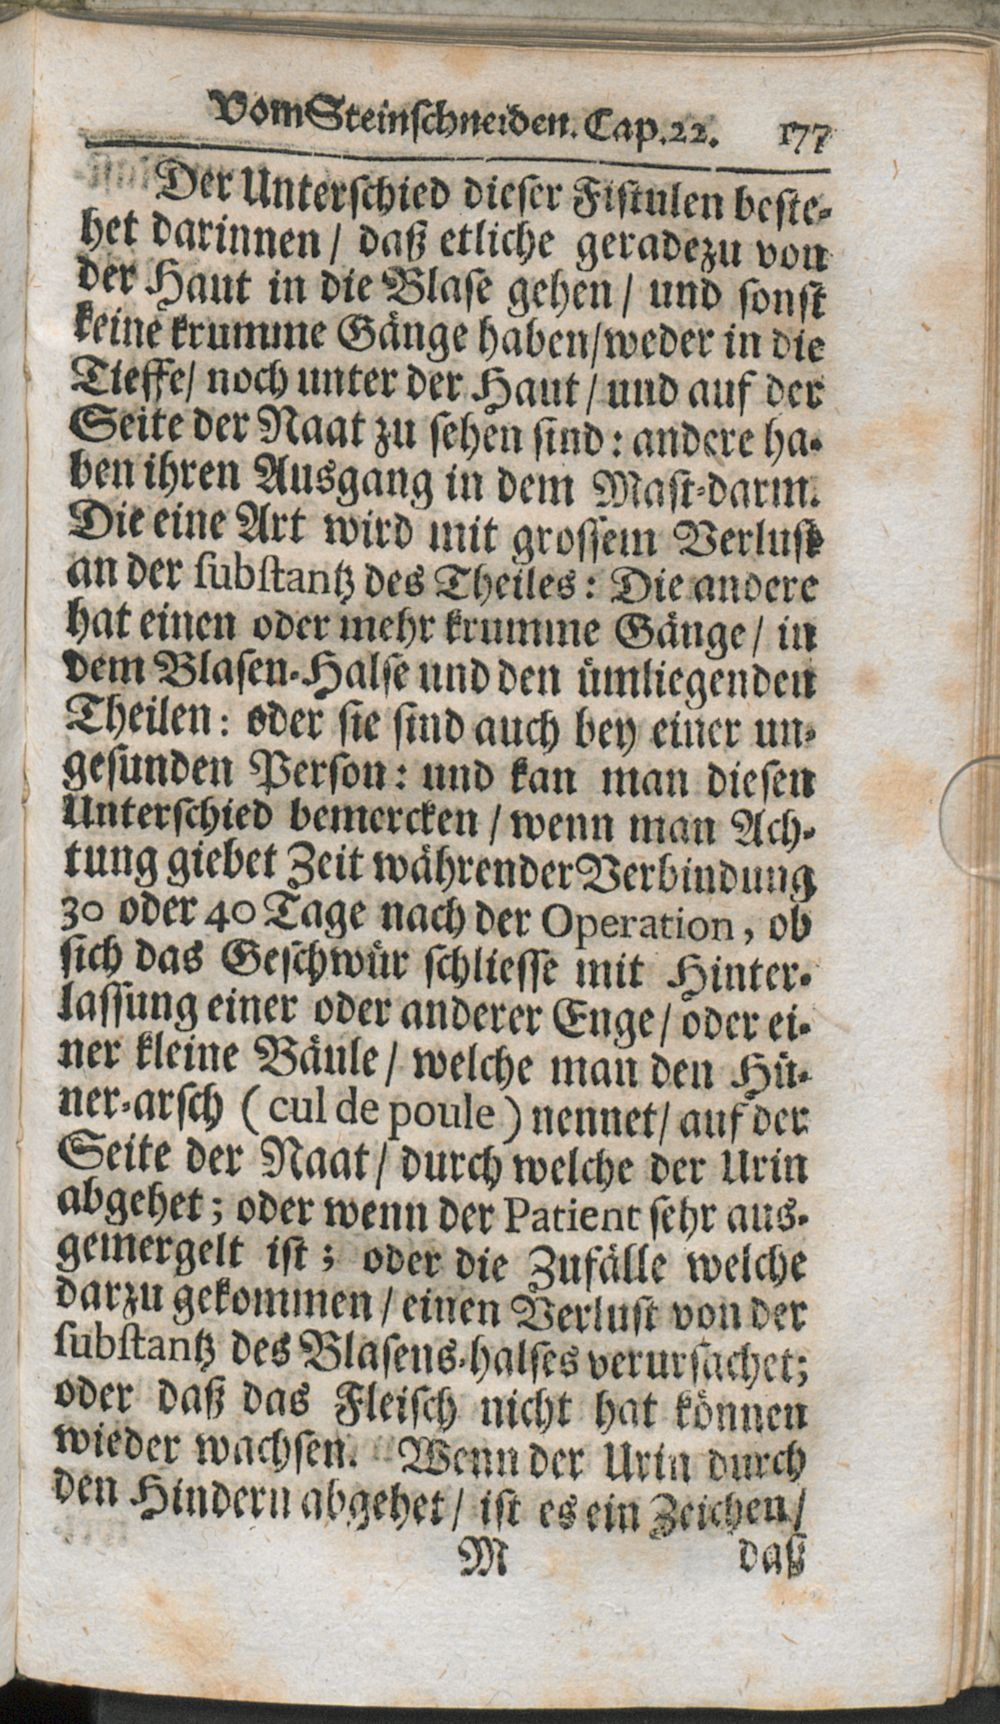 Vom Steinschneiden. Cap. 22. 177
Der Unterschied dieser Fistulen beste-
het darinnen / daß etliche geradezu von
der Haut in die Blase gehen / und sonst
keine krumme Gänge haben / weder in die
Tieffe / noch unter der Haut / und auf der
Seite der Naat zu sehen sind: andere ha-
ben ihren Ausgang in dem Mast-darm.
Die eine Art wird mit grossem Verlust
an der substantz des Theiles: Die andere
hat einen oder mehr krumme Gänge / in
dem Blasen-Halse und den ümliegenden
Theilen: oder sie sind auch bey einer un-
gesunden Person: und kan man diesen
Unterschied bemercken / wenn man Ach-
tung giebet Zeit währender Verbindung
30 oder 40 Tage nach der Operation, ob
sich das Geschwür schliesse mit Hinter-
lassung einer oder anderer Enge / oder ei-
ner kleine Bäule / welche man den Hü-
ner-arsch (cul de poule) nennet / auf der
Seite der Naat / durch welche der Urin
abgehet; oder wenn der Patient sehr aus-
gemergelt ist; oder die Zufälle welche
darzu gekommen / einen Verlust von der
substantz des Blasens-halses verursachet;
oder daß das Fleisch nicht hat können
wieder wachsen. Wenn der Urin durch
den Hindern abgehet / ist es ein Zeichen /
M daß